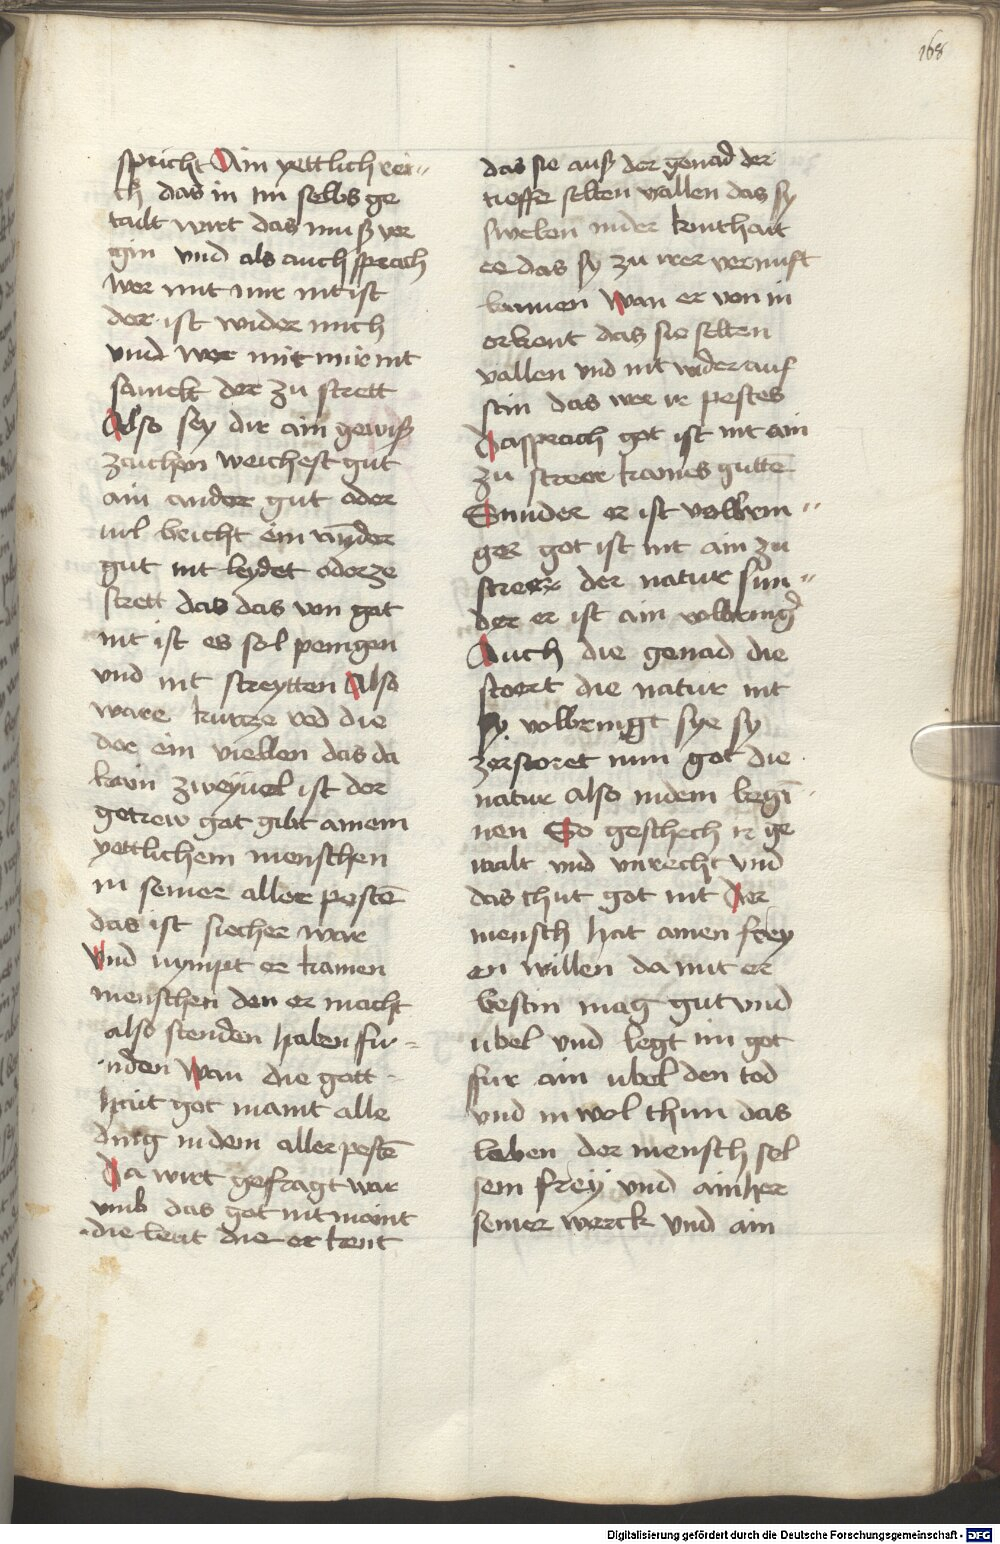 168
spricht Ain yettlich rei„
ch das in im selbs ge
tailt wirt das muß ver
gin vnd als auch sprach
wer mit mir nit ist
der ist wider mich
vnd wer mit mir nit
samelt der zu strett
Also sey dir ain gewiß
zaichen weichest gut
ain ander gut oder
wl beicht ein ander
gut nit leydet oder ze
strett das das von got
nit ist es sol peingen
vnd nit streytten Also
ware kurtze red die
der ein viellen das da
kain zweyuel ist der
getrew got gibt ainem
yettlichem menschen
in seiner aller peste
das ist siecher war
Vnd nympt er kainen
menschen den er macht
also stenden haben fu-
nden Wan die gott
hait got maint alle
ding in dem aller peste
Da wirt gefragt war
vmb das got nit maint
die leut die er kent
das sie auß der genad der
tieffe solten vallen das sy
sweben in der kinthait
ee das sy zu irer vernuft
kamen Wan er von in
erkent das sie solten
vallen vnd nit wider auf
stin das wer ir pestes
Da sprach got ist nit ain
zu storer kaines gutte
Sunder er ist volbrin„
ger got ist nit ain zu
storer der natur sun„
der er ist ain volbringer
Auch die genad die
stoert die natur nit
sy volbringt sye sy
zerstoret nun got die
natur also in dem begi
nen So geschech ir ge
walt vnd vnrecht vnd
das thut got nit Der
mensch hat ainen frey
en willen da mit er
bestin mag gut vnd
ubel vnd legt im got
fur ain ubel den tod
vnd in wol thun das
leben der mensch sol
sein frey vnd ain her
seiner werck vnd ain
Digitalisierung gefördert durch die Deutsche Forschungsgemeinschaft - DFG